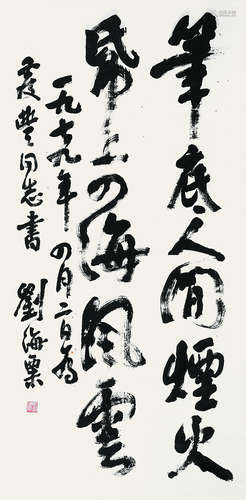 筆底人間煙火
帋上四海風雲
一九七九年四月二日為
霞豐同志書 劉海粟